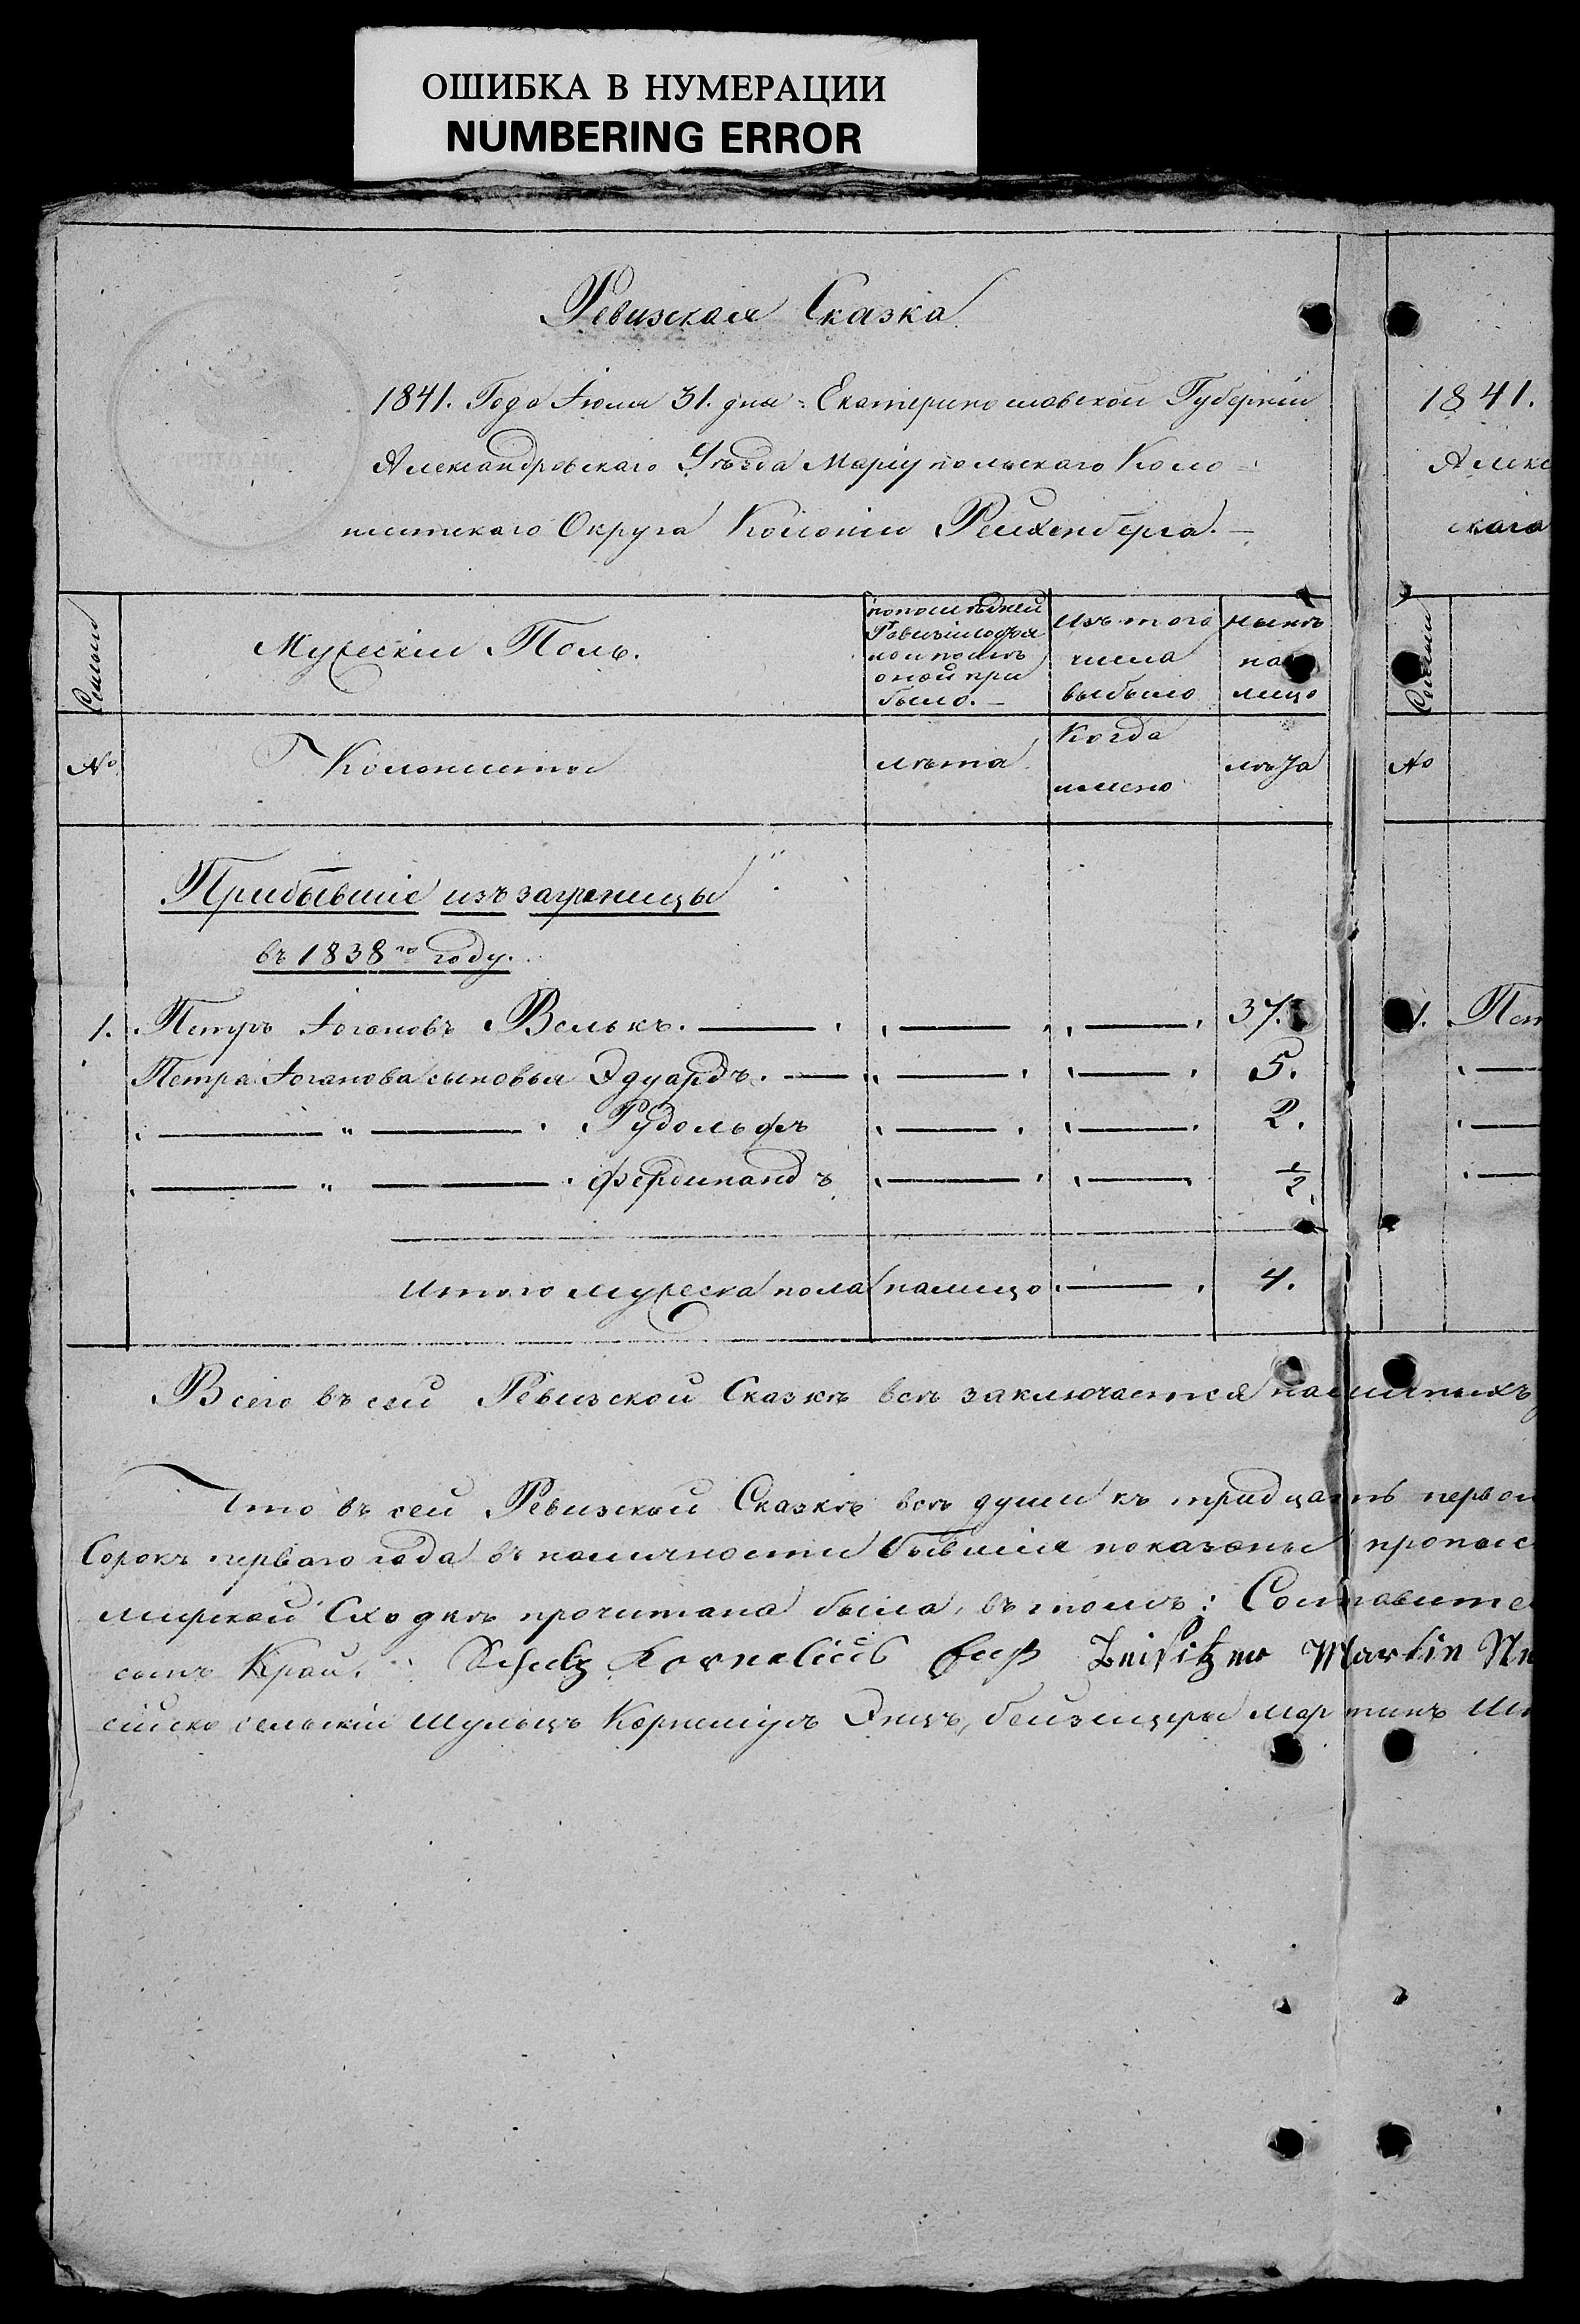 ОШИБКА В НУМЕРАЦИИ
NUMBERING ERROR
Ревизская Сказка
1841. Года Іюля 31. дня Екатеринославской Губерніи
Александровскаго Уѣзда Маріупольскаго Коло=
нистскаго Округа Колоніи Рейхенберга.
1841.
Алекс
скаго
Семьи
Мужескій Полъ.
по послѣдней Ревизіи было и послѣ оной прибыло.
Изъ того числа выбыло
Нынѣ на лицо
Семьи
№
Колонисты
лѣта
Когда имено
лѣта
№
Прибывшіе изъ заграницы
въ 1838го году.
1. Петръ Іогановъ Вельке. 37. 1. Пет
Петра Іоганова сыновья Эдуардъ. 5.
" Рудольфъ 2.
" Фердинандъ 1/2.
Итого мужеска пола на лицо 4.
Всего въ сей Ревизской Сказкѣ всѣ заключается наличныхъ
Что въ сей Ревизской Сказкѣ всѣ души къ тридцать перво
Сорокъ перваго года въ наличности бывшія показаны
мирской Сходкѣ прочитана была, въ томъ: Составите
сынъ Край. Schulz Kornelius Enß Beisitzer Martin
сельскій Шульцъ Корнеліусъ Энцъ, бейзицеры Мартинъ